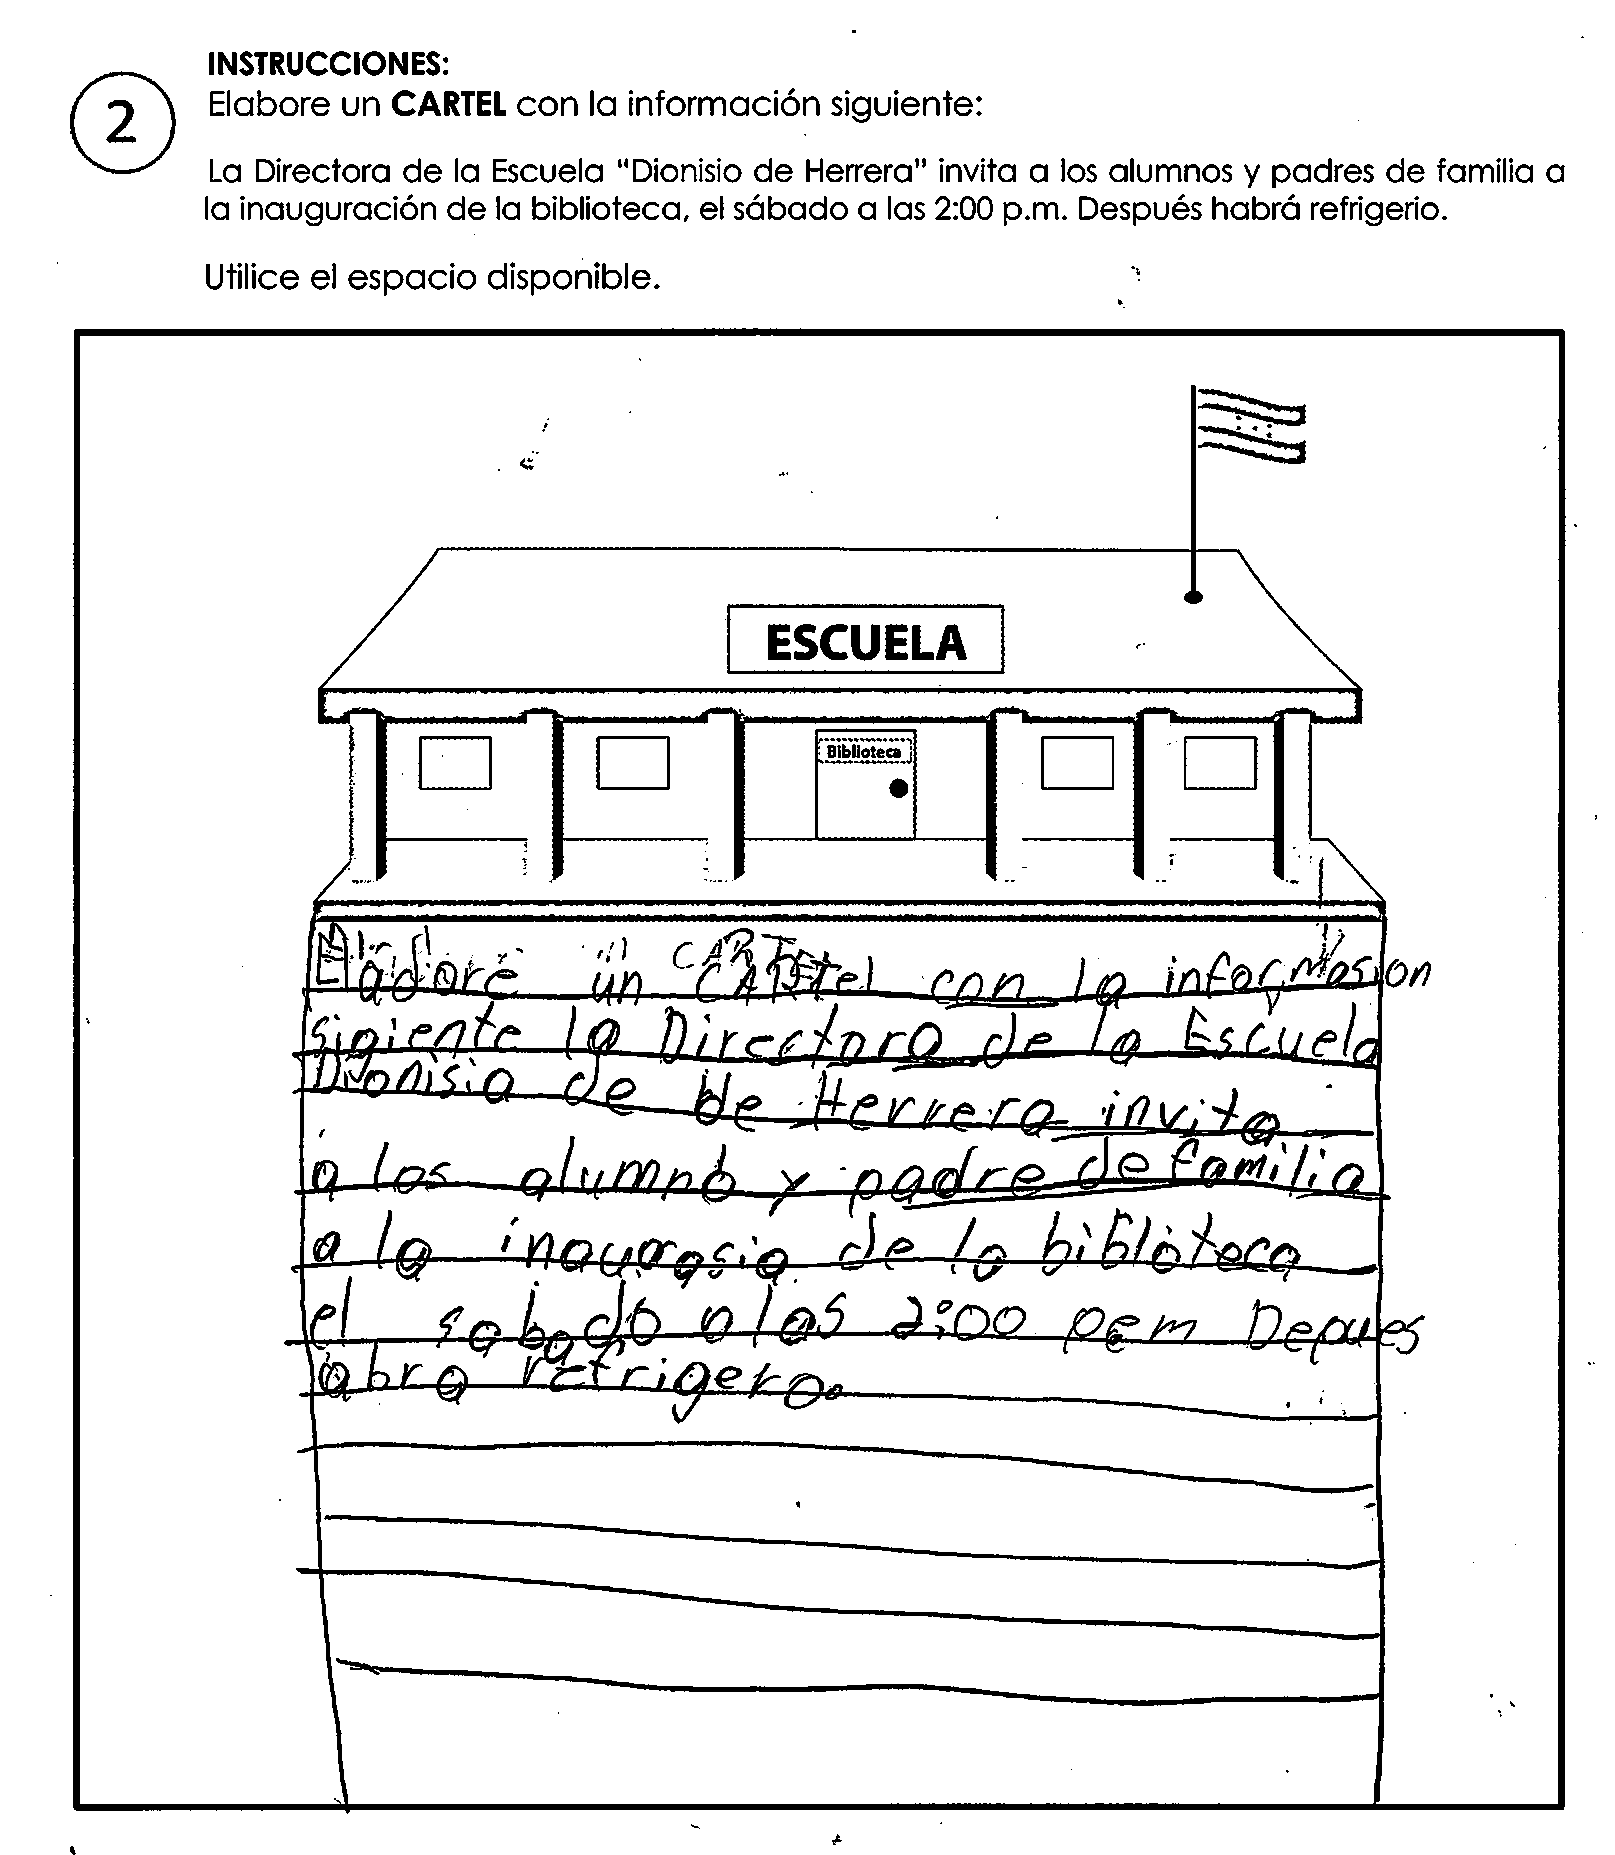 INSTRUCCIONES:
2
Elabore un CARTEL con la información siguiente:
La Directora de la Escuela "Dionisio de Herrera" invita a los alumnos y padres de familia a
la inauguración de la biblioteca, el sábado a las 2:00 p.m. Después habrá refrigerio.
Utilice el espacio disponible.
ESCUELA
Biblioteca
Eladore un CARTel con la informasion
sigiente la Directora de la Escuela
Dionisia de de Herrera invita
a los alumno y padre de familia
a la inaurasia de la biblioteca
el sabado a las 2:00 pem Depues
abra refrigero.